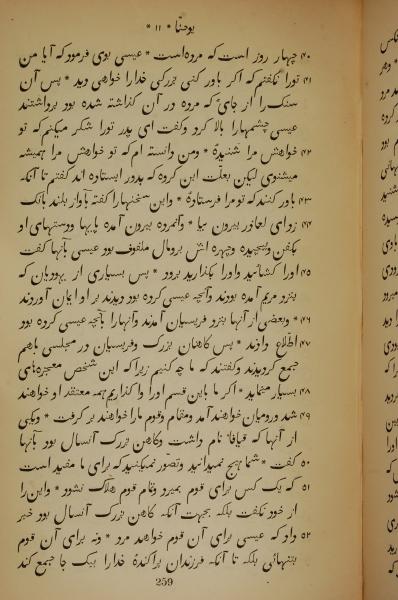 یوحنّا * ۱۱ *
۴۰ چهار روز است که مرده‌است * عیسی بوی فرمود که آیا من
۴۱ تورا نگفتم که اگر باور کنی بزرگی خدارا خواهی دید * پس آن
سنگ را از جائیکه مرده در آن گذاشته شده بود برداشتند
عیسی چشمهارا بالا کرد وگفت ای پدر تورا شکر میکنم که تو
۴۲ خواهش مرا شنیدهٔ * ومن دانسته ام که تو خواهش مرا همیشه
میشنوی لیکن بعلّت این گروه که بدور ایستاده اند گفتم تا آنکه
۴۳ باور کنند که تو مرا فرستادهٔ * واین سخنهارا گفته بآواز بلند بانگ
۴۴ زد ای لعازر بیرون بیا * وآنمرده بیرون آمده پایها ودستهای او
بکفن پیچیده وچهره اش برومال ملفوف بود عیسی بآنها گفت
۴۵ اورا کشائید واورا بگذارید برود * پس بسیاری از یهودیان که
بنزد مریم آمده بودند وآنچه عیسی کرده بود دیدند بر او ایمان آوردند
۴۶ * وبعضی از آنها بنزد فریسیان آمدند وآنهارا بآنچه عیسی کرده بود
۴۷ اطلاع دادند * پس کاهنان بزرگ وفریسیان در مجلسی باهم
جمع گردیدند وگفتند که ما چه کنیم زیرا که این شخص معجزهای
۴۸ بسیار مینماید * اگر ما باین قسم اورا وا گذاریم همه معتقد او خواهند
۴۹ شد ورومیان خواهند آمد ومقام وقوم مارا خواهند بر گرفت * ویکی
از آنها که قیافا نام داشت وکاهن بزرگ آنسال بود بآنها
۵۰ گفت * شما هیچ نمیدانید وتصور نمیکنید که برای ما مفید است
۵۱ که یک کس برای قوم بمیرد وتمام قوم هلاک نشود * واین را
از خود نگفت بلکه بجهت آنکه کاهن بزرگ آنسال بود خبر
۵۲ داد که عیسی برای آن قوم خواهد مرد * ونه برای آن قوم
بتنهائی بلکه تا آنکه فرزندان پراکندهٔ خدارا بیک جا جمع کند
259